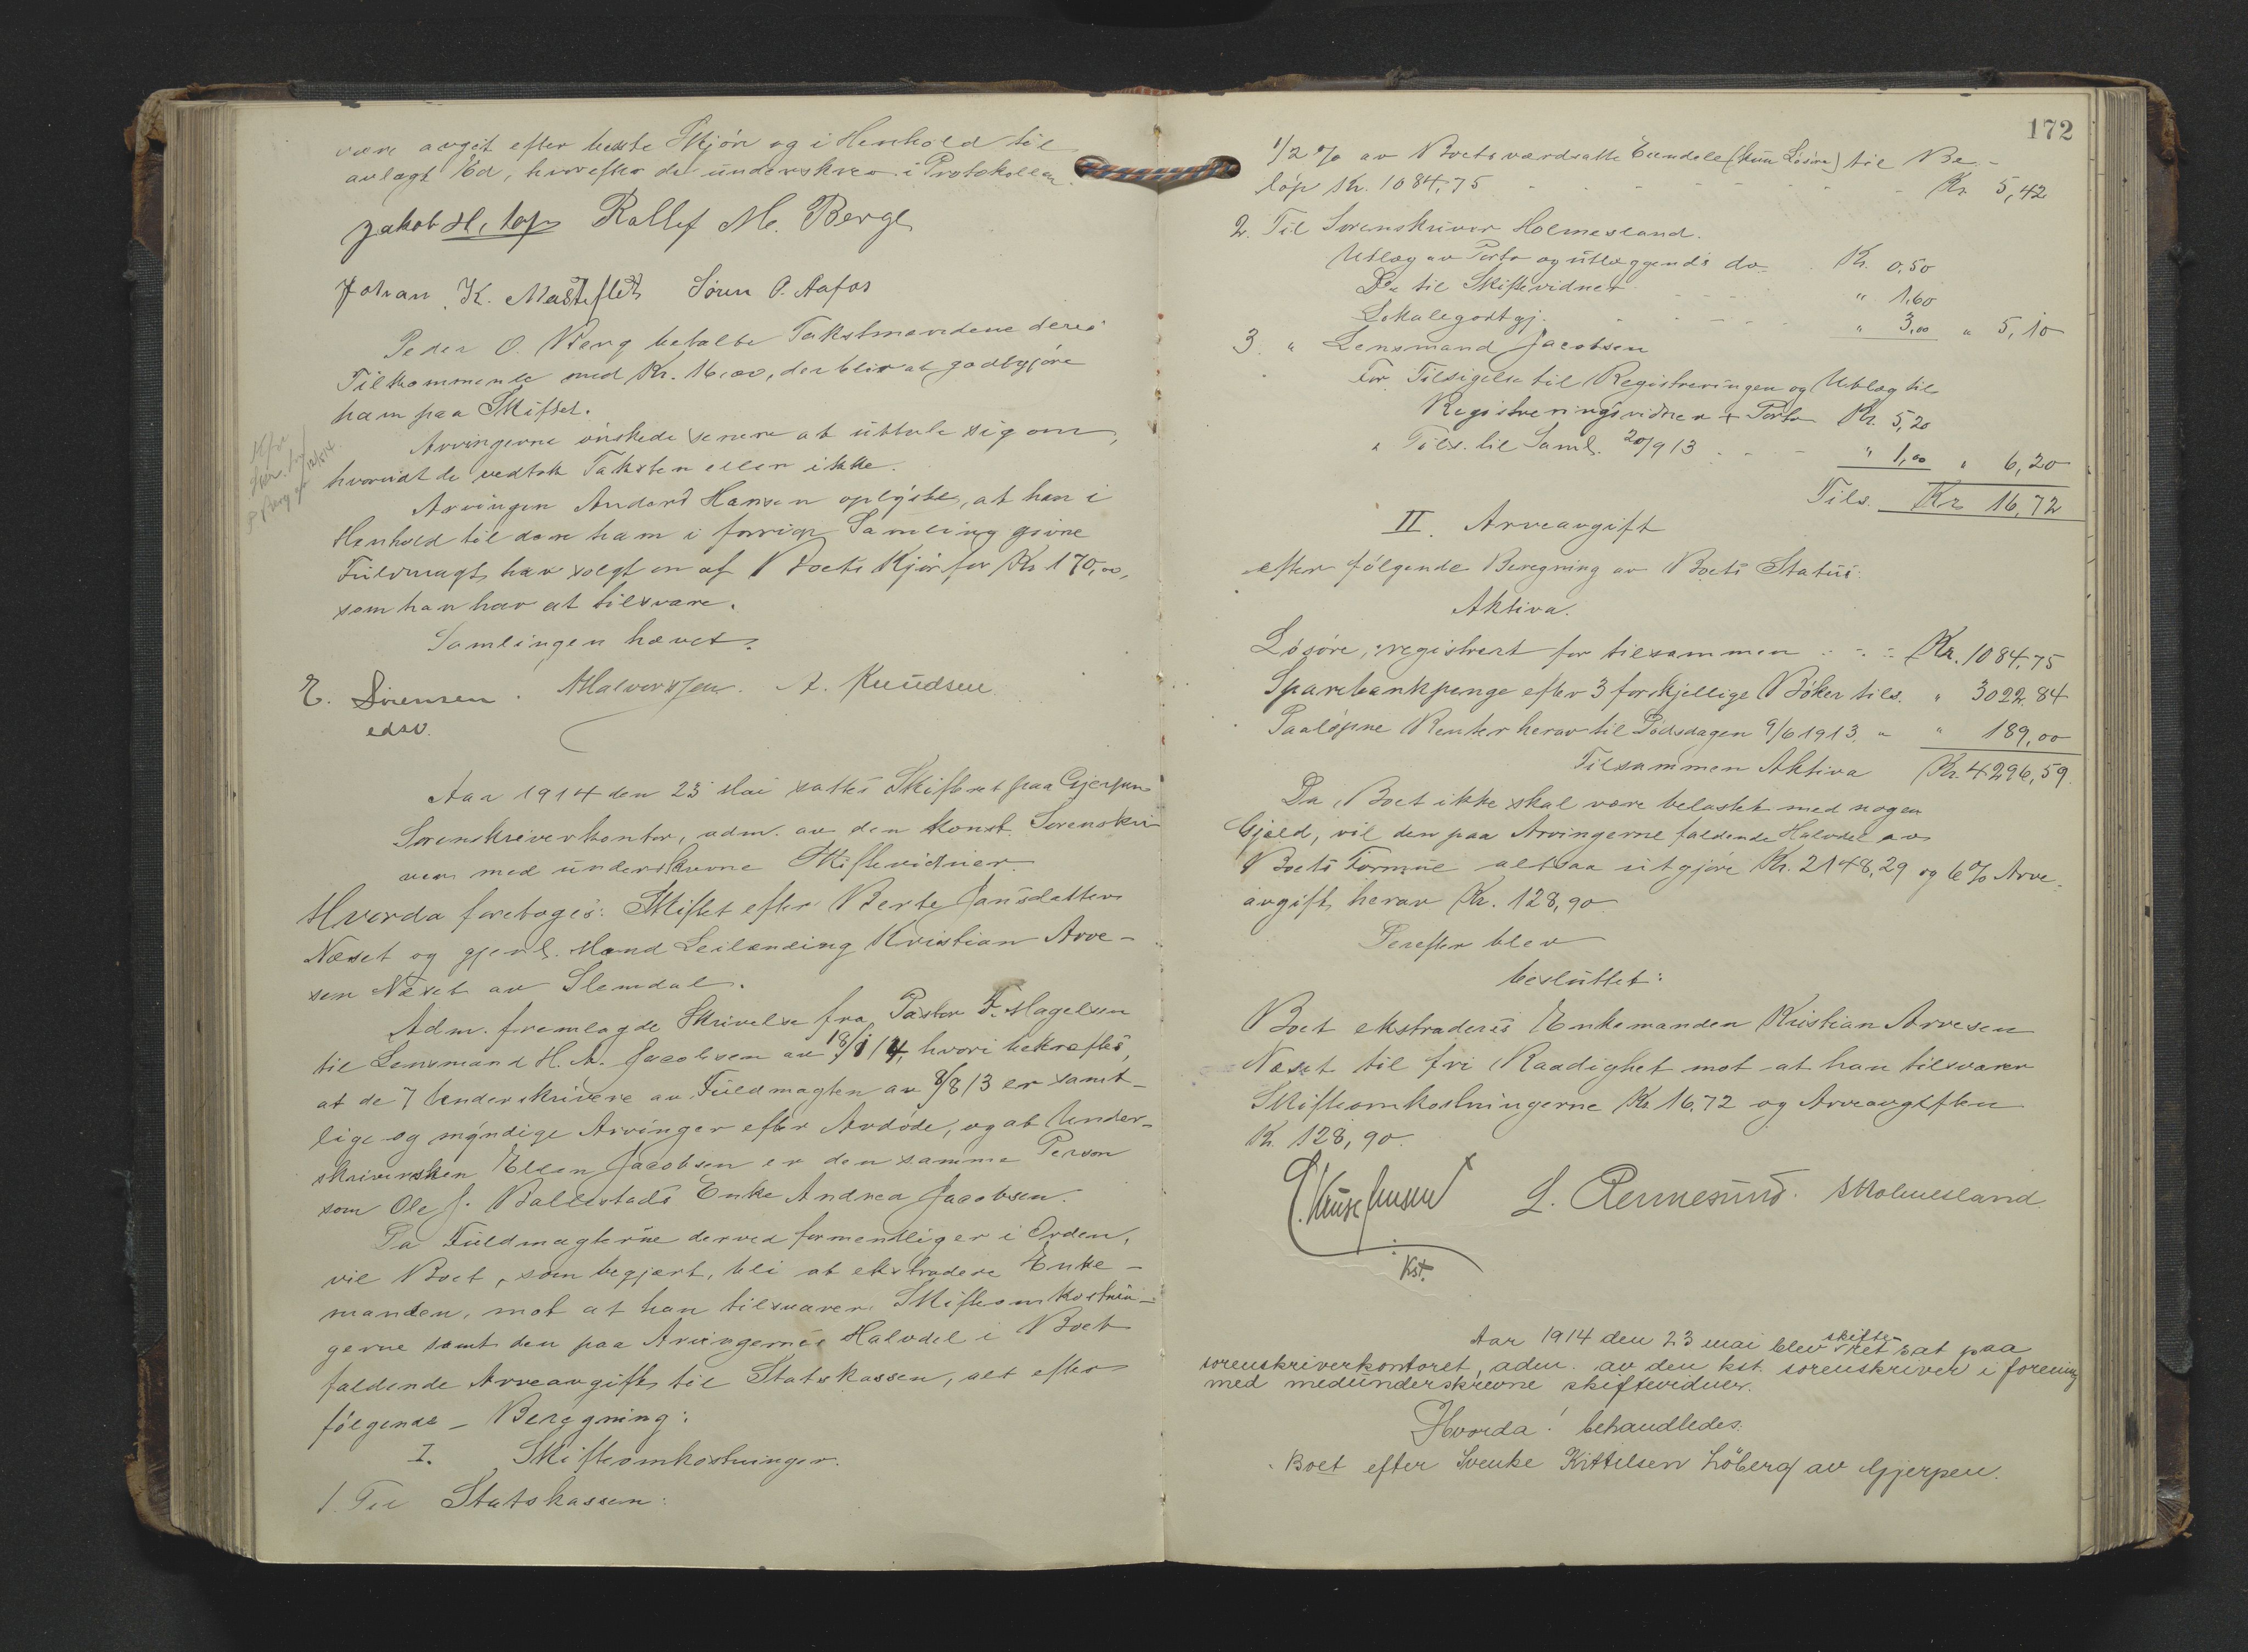 være avgit efter beste Skjön og i Henhold til
avlagt Ed, hvorefter de underskrev i Protokollen.
Jakob H. Rollef M. Berge
Johan K. Søren P. Aafos
Peder O. Berg betalte Takstmændene deres
Tilkommende med Kr. 16,00, der blir at godtgjöre
ham paa Skiftet.
Arvingerne önskede senere at uttale sig om,
hvorvidt de vedtok Taksten eller ikke.
Arvingen Anders Hansen oplyste, at han i
Henhold til den ham i forrige Samling givne
Fuldmagt har solgt en af Boets Kjör for Kr 170,00,
som han har at tilsvare.
Samlingen hævet.
E. Sörensen. Halvorsen. A. Knudsen
edsv.
Aar 1914 den 23 Mai sattes Skifteret paa Gjerpen
Sorenskriverkontor, adm. av den konst. Sorenskri-
ver med underskrevne Skiftevidner.
Hvorda foretoges: Skiftet efter Berte Jansdatter
Næset og gjenl. Mand Leilænding Kristian Arve-
sen Næset av Slemdal.
Adm. fremlagde Skrivelse fra Pastor F. Magelsen
til Lensmand H. A. Jacobsen av 18/1 14, hvori bekræftes,
at de 7 Underskrivere av Fuldmagten av 8/8 13 er samt-
lige og myndige Arvinger efter Avdöde, og at Under-
skriversken Ellen Jacobsen er den samme Person
som Ole J. Ballestads Enke Andrea Jacobsen.
Da Fuldmagterne derved formentlig er i Orden,
vil Boet, som begjært, bli at ekstradere Enke-
manden, mot at han tilsvarer Skifteomkostnin-
gerne samt den paa Arvingernes Halvdel i Boet
faldende Arveavgift til Statskassen, alt efter
følgende Beregning:
I. Skifteomkostninger.
1. Til Statskassen:
172
1/2 % av Boets værdsatte Eiendele (kun Lösöre) til Be-
löp Kr. 1084,75 Kr. 5,42
2. Til Sorenskriver Holmesland.
Utlæg av Porto og utlæggendes do. Kr. 0,50
Do til Skiftevidner " 1,60
Lokalegodtgj. " 3,00 " 5,10
3. " Lensmand Jacobsen
For Tilsigelse til Registreringen og Utlæg til
Registreringsvidner + Porto Kr. 5,20
" Tils. til Saml. 20/9 13 " 1,00 " 6,20
Tils. Kr. 16,72
II. Arveavgift
efter fölgende Beregning av Boets Status:
Aktiva.
Lösöre, registrert for tilsammen Kr. 1084,75
Sparebankpenge efter 3 forskjellige Böker tils. " 3022,84
Paalöpne Renter herav til Dödsdagen 9/6 1913 " " 189,00
Tilsammen Aktiva Kr. 4296,59.
Da Boet ikke skal være belastet med nogen
Gjæld, vil den paa Arvingerne faldende Halvdel av
Boets Formue altsaa utgjöre Kr. 2148,29 og 6 % Arve-
avgift herav Kr. 128,90
Derefter blev
besluttet:
Boet ekstraderes Enkemanden Kristian Arvesen
Næset til fri Raadighet mot at han tilsvarer
Skifteomkostningerne Kr 16,72 og Arveavgiften
Kr. 128,90.
L. Rennesund. Holmesland
Kst.
Aar 1914 den 23 mai blev skifteret sat paa
sorenskriverkontoret, adm. av den kst. sorenskriver i forening
med medunderskrevne skiftevidner.
Hvorda! behandledes:
Boet efter Svenke Kittilsen Löberg av Gjerpen.